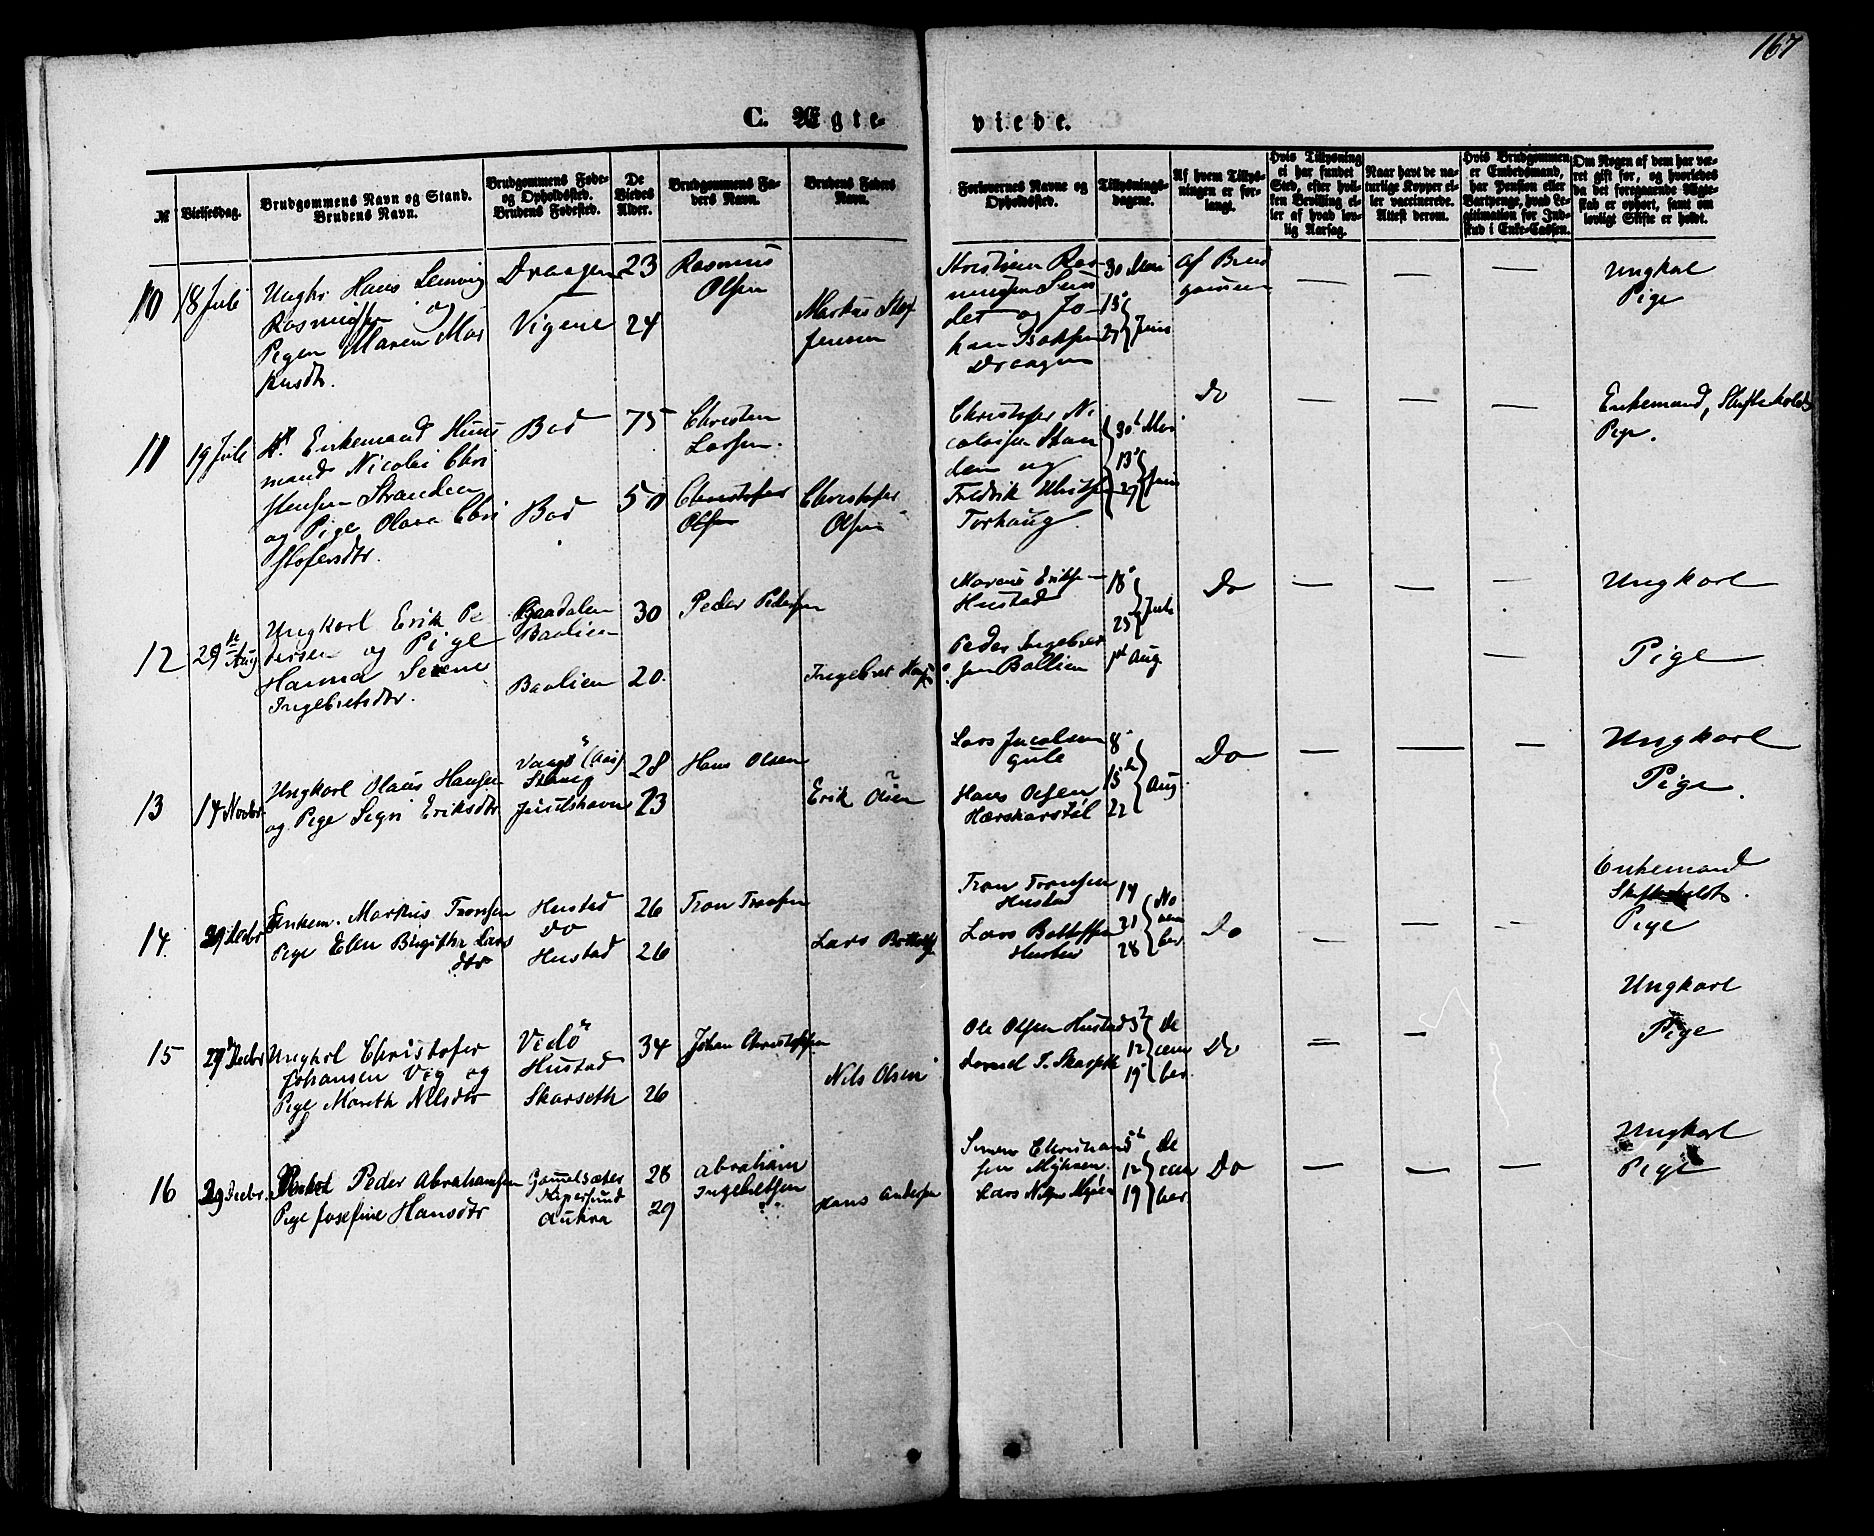 167
C. Ægte-
viede.
№
Vielsesdag.
Brudgommens Navn og Stand.
Brudens Navn.
Brudgommens Føde-
og Opholdssted.
Brudens Fødested.
De
Viedes
Alder.
Brudgommens Fa-
ders Navn.
Brudens Faders
Navn.
Forlovernes Navne og
Opholdssted.
Tillysnings-
dagene.
Af hvem Tillys-
ningen er for-
langt.
Hvis Tillysning
ei har fundet
Sted, efter hvil-
ken Bevilling el-
ler af hvad lov-
lig Aarsag.
Naar havt de na-
turlige Kopper el-
ler vaccinerede.
Attest derom.
Hvis Brudgommen
er Embedsmand,
har Pension eller
Vartpenge, hvad Le-
gitimation for Ind-
skud i Enke-Cassen.
Om Nogen af dem har væ-
ret gift før, og hvorledes
da det foregaaende Ægte-
skab er ophørt, samt om
lovligt Skifte er holdt.
10 18 Juli
Ungkr. Hans Lemvig
Rasmussen og
Pigen Maren Mar
kusdtr.
Draagen
Vigene
23
24
Rasmus
Olsen
Markus Stef
fensen
Kristian Ras-
mussen
let og Jo-
han
Draagen
30 Mai
13
27 Juni
Af Brud
gommen
— — —
Ungkal
Pige
11 19 Juli
Enkemand Huus
mand Nicolai Chri
stensen Stranden
og Pige Olava Chri
stofersdtr.
Bod
Bod
75
50
Christen
Larsen.
Christofer
Olsen
Christofer
Olsen
Christofer Ni
colaisen Stran
den og
Fredrik
Torhaug
30 Mai
13
27 Juni
Do
— — —
Enkemand, Skifte holdt
Pige.
12 29de Aug
Ungkarl Erik Pe
dersen og Pige
Hanna Serene
Ingebretsdtr.
Baadalen
Baolien
Baolien
30
20
Peder Pedersen
Ingebret
Marcus Eriksen
Hustad
Peder Ingebret
sen Bollien
18
25 Juli
1st Aug.
Do
— — —
—
Ungkarl
Pige
13 14 Novbr
Ungkarl Olaus Hansen
og Pige Segri Eriksdtr
Stavig
Julshavn
28
23
Hans Olsen
Erik Olsen
Lars Jacobsen
Gule
Hans Olsen
Hærskarstøl
8
15de
22 Aug
Do
— — —
Ungkarl
Pige
14. 29 Decbr
Enkem. Markus Tronsen
Pige Elen Birgithe Lars
dtr
Hustad
Do
Hustad
26
26
Tron Tronsen
Lars Bottolfs
Tron Tronsen
Hustad
Lars Bottolfsen
Hustad
14
21
28
No
vem
ber
Do
— — —
Enkemand
Skifte holdt.
Pige
15 29de Decbr
Ungkarl Christofer
Johansen Vig og
Pige Mareth Nilsdtr
Vedö
Hustad
Skarseth
34
26
Johan Christofersen
Nils Olsen
Ole Olsen Hustad
5
12
19
De
cem
ber.
Do
— —
Ungkarl
Pige
16 29 Decbr.
Peder Abrahamsen
Pige Josefine Hansdtr
Gammelsæter
Aukra
28
29
Abraham
Ingebretsen
Hans Andersen
Simon Christian
sen Myhren.
Lars Nilsen
5te
12
19
De
cem
ber
Do
— — —
Ungkarl
Pige